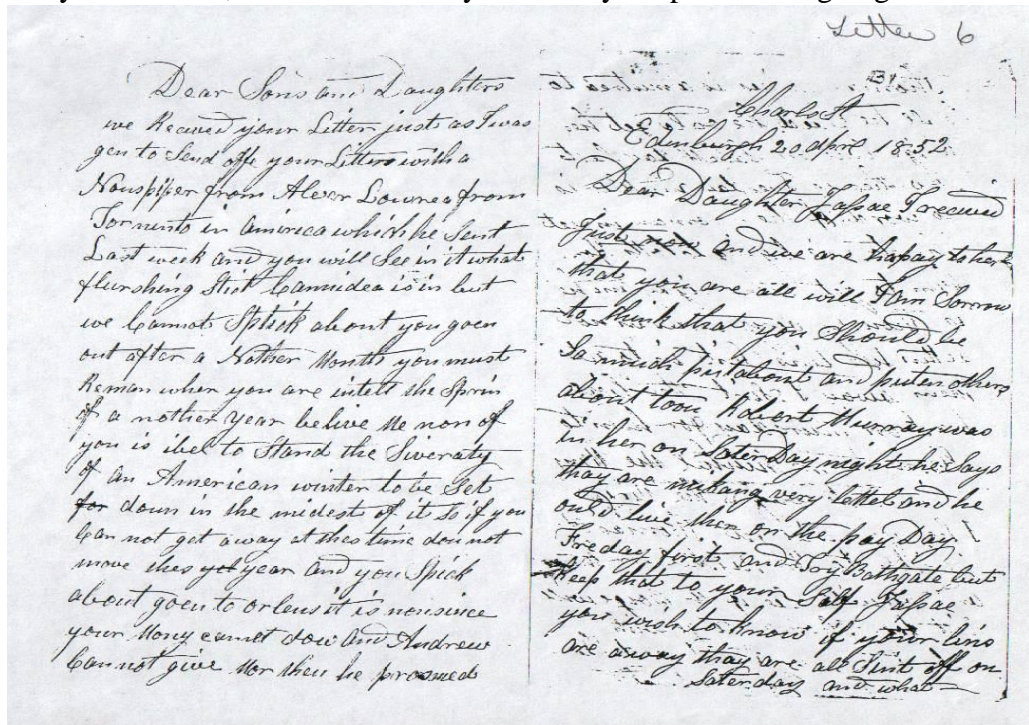 Letter 6
Dear Sons and Daughters
we Receved your Letter just as I was
gen to Send offe your Letters with a
Nouspiper from Alexr Lowrea from
Tornento in America which he Sent
Last week and you will See in it what
flurshing Stiet Cannidea is in but
we Cannot Spiick about you goen
out after a Nother Month you must
Reman wher you are intell the Sprin
of a nother year belive Me non of
you is ibel to Stand the Siveraty
of an American winter to be Set
for down in the midest of it so if you
Can not get away at thes time dou not
move thes year and you Spick
about goen to orleus it is nonsince
your Mony cannet dow and Andrew
Cannot give Nor then he promed
31
Charls St
Edinburgh 20 Apre 1852
Dear Daughter Jassae I receved
just now and we are hapay to hear
that you are all will I am Sorrow
to think that you Should be
So much pit about and piten others
about toou Robert Murray was
in her on SaterDay night he Says
thay are making very lettel and he
ould live ther on the pay Day
Freday first and Try Bathgate but
Keep that to your Self Jassae
you wish to know if your lins
are away thay are all Sint off on
Saterday and what